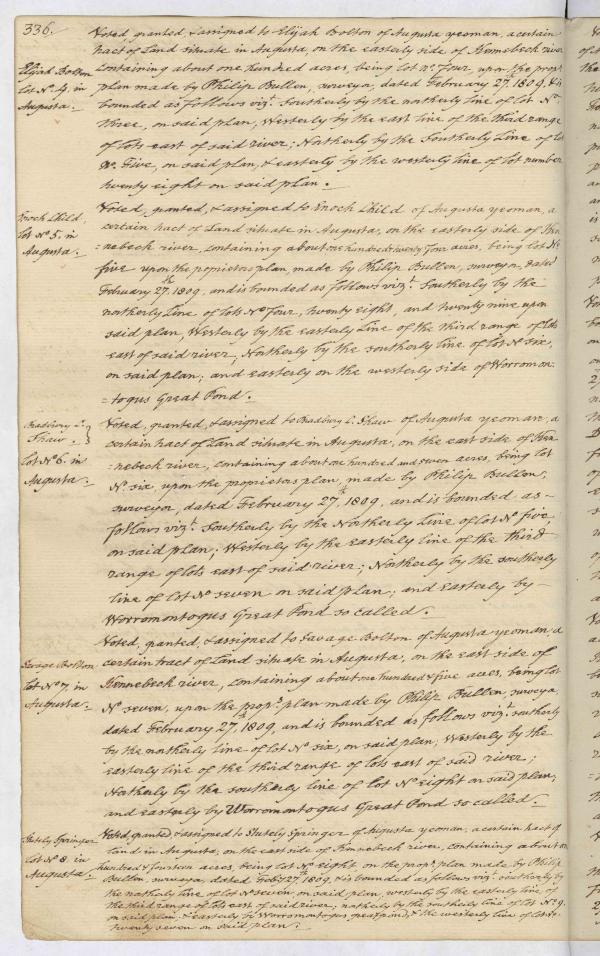 336.
Voted, granted, & assigned to Elijah Bolton of Augusta yeoman, a certain
tract of Land situate in Augusta, on the easterly side of Kennebeck river
Elijah Bolton
lot No. 4. in
Augusta.
containing about one hundred acres, being lot No. Four, upon the proprs.
plan made by Philip Bullen, surveyor, dated February 27th. 1809. & is
bounded as follows vizt. Southerly by the northerly line of lot No.
three, on said plan, Westerly by the east line of the third range
of lots east of said river; Northerly by the Southerly Line of lot
No. Five, on said plan, & easterly by the westerly line of lot number
twenty eight on said plan.
Enoch Child
lot No 5. in
Augusta.
Voted, granted, & assigned to Enoch Child of Augusta yeoman, a
certain tract of Land situate in Augusta, on the easterly side of Ken
=nebeck river, containing about one hundred twenty four acres, being lot No
five upon the proprietors plan, made by Philip Bullen, surveyor, dated
February 27th. 1809, and is bounded as follows vizt. Southerly by the
northerly Line of lots No Four, twenty eight, and twenty nine upon
said plan, Westerly by the easterly Line of the third range of lots
east of said river, Northerly by the southerly line of lot No six,
on said plan; and easterly on the westerly side of Worromon
=togus Great Pond.
Bradbury L.
Shaw.
lot No 6. in
Augusta.
Voted, granted, & assigned to Bradbury L. Shaw of Augusta yeoman, a
certain tract of Land situate in Augusta, on the east side of Ken
=nebeck river, containing about one hundred and seven acres, being lot
No. six, upon the proprietors plan, made by Philip Bullen,
surveyor, dated February 27th. 1809, and is bounded as
follows vizt. Southerly by the Northerly Line of lot No five,
on said plan; Westerly by the easterly line of the third
range of lots east of said river; Northerly by the southerly
line of lot No seven on said plan; and Easterly by
Worromontogus Great Pond so called.
Savage Bolton
lot No 7. in
Augusta.
Voted, granted, & assigned to Savage Bolton of Augusta yeoman, a
certain tract of Land situate in Augusta, on the east side of
Kennebeck river, containing about one hundred & five acres, being lot
No seven, upon the proprs. plan made by Philip Bullen, surveyor,
dated February 27th. 1809, and is bounded as follows vizt. southerly
by the northerly line of lot No six, on said plan, Westerly by the
easterly line of the third range of lots east of said river;
Northerly by the southerly line of lot No eight on said plan;
and easterly by Worromontogus Great Pond so called.
Stutely Springer
lot No 8. in
Augusta.
Voted, granted & assigned to Stutely Springer of Augusta yeoman, a certain tract of
land in Augusta, on the east side of Kinnebeck river, containing about one
hundred & fourteen acres, being lot No eight, on the proprs. plan made by Philip
Bullen, surveyor, dated Feby. 27th 1809, & is bounded as follows vizt. southerly by
the northerly line of lot No seven on said plan, westerly by the easterly line of
the third range of lots east of said river, northerly by the southerly line of lot No 9.
on said plan, & easterly by Worromontogus, great pond, & the westerly line of lot No.
twenty seven on said plan.